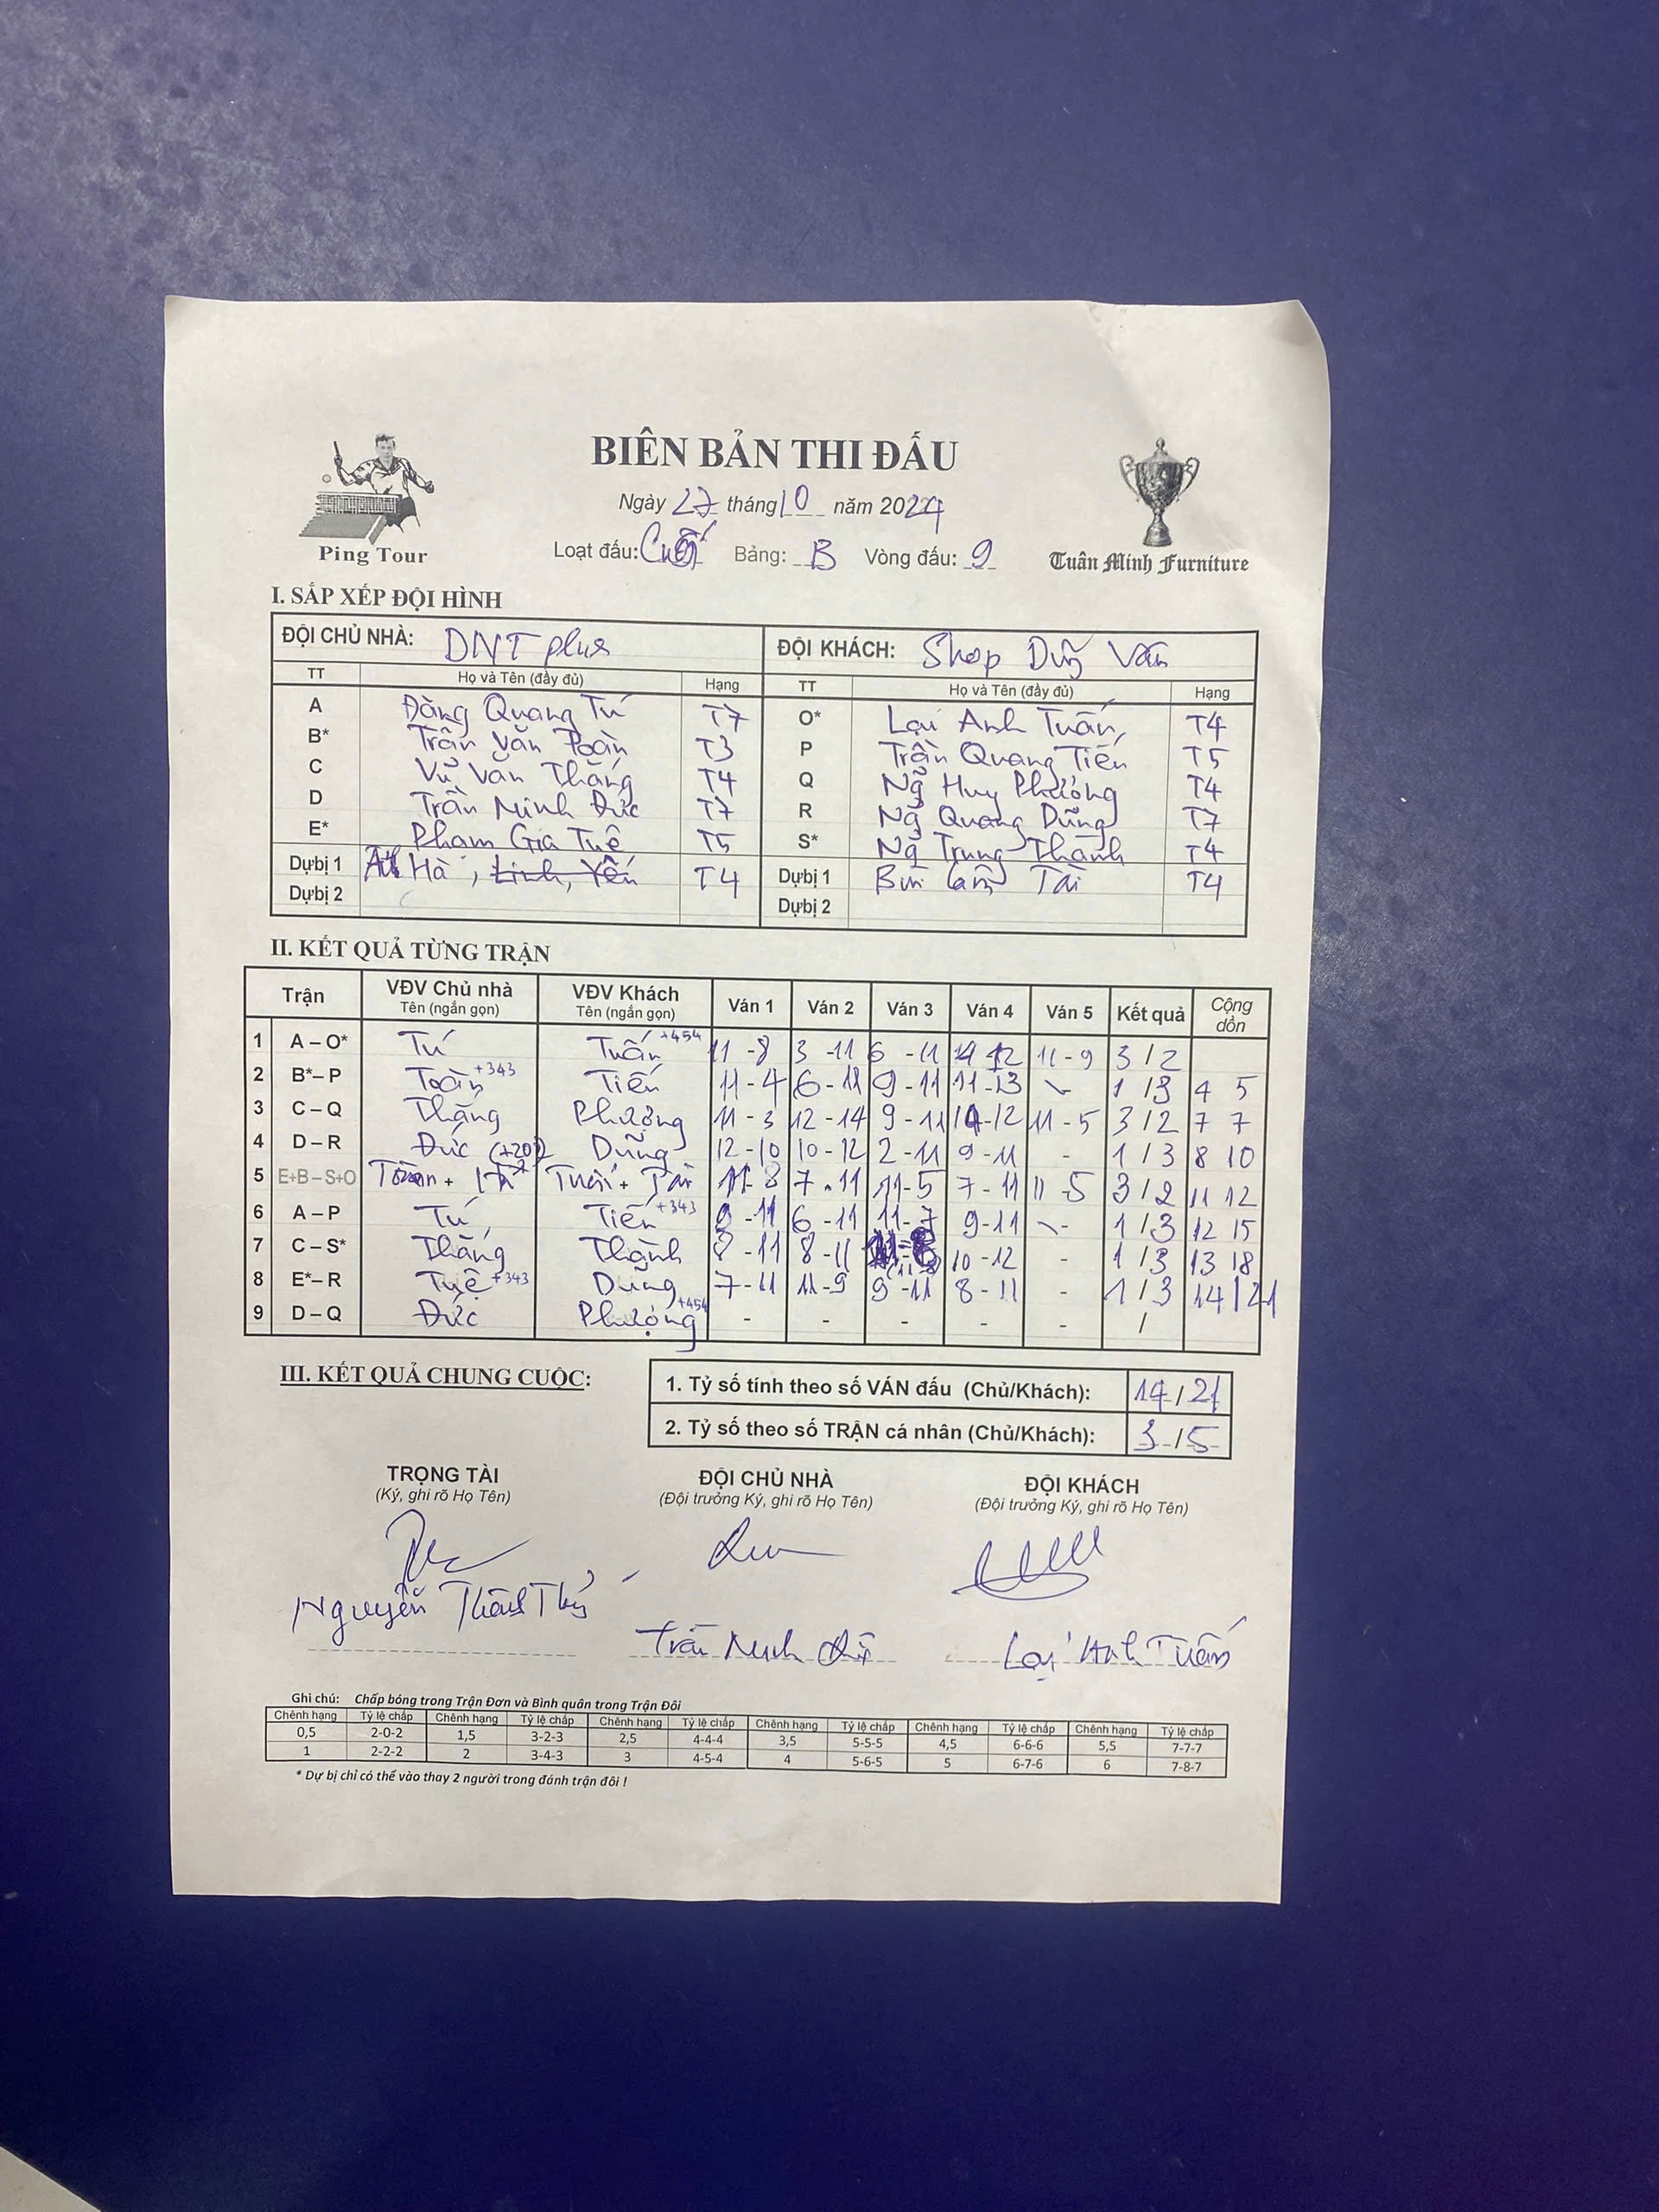 BIÊN BẢN THI ĐẤU
Ngày 27 tháng 10 năm 2024
Ping Tour
Loạt đấu: Cuối Bảng: B Vòng đấu: 9
Tuân Minh Furniture
I. SẮP XẾP ĐỘI HÌNH
ĐỘI CHỦ NHÀ: DNT plus ĐỘI KHÁCH: Shop Dũng Vân
TT Họ và Tên (đầy đủ) Hạng TT Họ và Tên (đầy đủ) Hạng
A Đàng Quang Tú T7 O* Lại Anh Tuấn T4
B* Trần Văn Toàn T3 P Trần Quang Tiến T5
C Vũ Văn Thắng T4 Q Ng Huy Phương T4
D Trần Minh Đức T7 R Ng Quang Dũng T7
E* Phạm Gia Tuệ T5 S* Ng Trung Thành T4
Dựbị 1 Hà, Linh, Yến T4 Dựbị 1 Bùi Tài T4
Dựbị 2 Dựbị 2
II. KẾT QUẢ TỪNG TRẬN
Trận VĐV Chủ nhà Tên (ngắn gọn) VĐV Khách Tên (ngắn gọn) Ván 1 Ván 2 Ván 3 Ván 4 Ván 5 Kết quả Cộng dồn
1 A – O* Tú Tuấn +454 11 - 8 3 - 11 6 - 11 12 11 - 9 3 / 2
2 B* – P Toàn +343 Tiến 11 - 4 6 - 11 9 - 11 11 - 13 1 / 3 4 5
3 C – Q Thắng Phương 11 - 3 12 - 14 9 - 11 - 12 11 - 5 3 / 2 7 7
4 D – R Đức Dũng 12 - 10 10 - 12 2 - 11 9 - 11 - 1 / 3 8 10
5 E+B – S+O Toàn + Tuấn + Tài 11 - 8 7 - 11 11 - 5 7 - 11 11 - 5 3 / 2 11 12
6 A – P Tú Tiến +343 9 - 11 6 - 11 11 - 7 9 - 11 - 1 / 3 12 15
7 C – S* Thắng Thành 8 - 11 8 - 11 10 - 12 - 1 / 3 13 18
8 E* – R Tuệ +343 Dũng 7 - 11 11 - 9 9 - 11 8 - 11 - 1 / 3 14 / 21
9 D – Q Đức Phương +454 - - - - - /
III. KẾT QUẢ CHUNG CUỘC:
1. Tỷ số tính theo số VÁN đấu (Chủ/Khách): 14 / 21
2. Tỷ số theo số TRẬN cá nhân (Chủ/Khách): 3 / 5
TRỌNG TÀI ĐỘI CHỦ NHÀ ĐỘI KHÁCH
(Ký, ghi rõ Họ Tên) (Đội trưởng Ký, ghi rõ Họ Tên) (Đội trưởng Ký, ghi rõ Họ Tên)
Nguyễn Trần Minh Đức Lại Anh Tuấn
Ghi chú: Chấp bóng trong Trận Đơn và Bình quân trong Trận Đôi
Chênh hạng Tỷ lệ chấp Chênh hạng Tỷ lệ chấp Chênh hạng Tỷ lệ chấp Chênh hạng Tỷ lệ chấp Chênh hạng Tỷ lệ chấp Chênh hạng Tỷ lệ chấp
0,5 2-0-2 1,5 3-2-3 2,5 4-4-4 3,5 5-5-5 4,5 6-6-6 5,5 7-7-7
1 2-2-2 2 3-4-3 3 4-5-4 4 5-6-5 5 6-7-6 6 7-8-7
* Dự bị chỉ có thể vào thay 2 người trong đánh trận đôi !